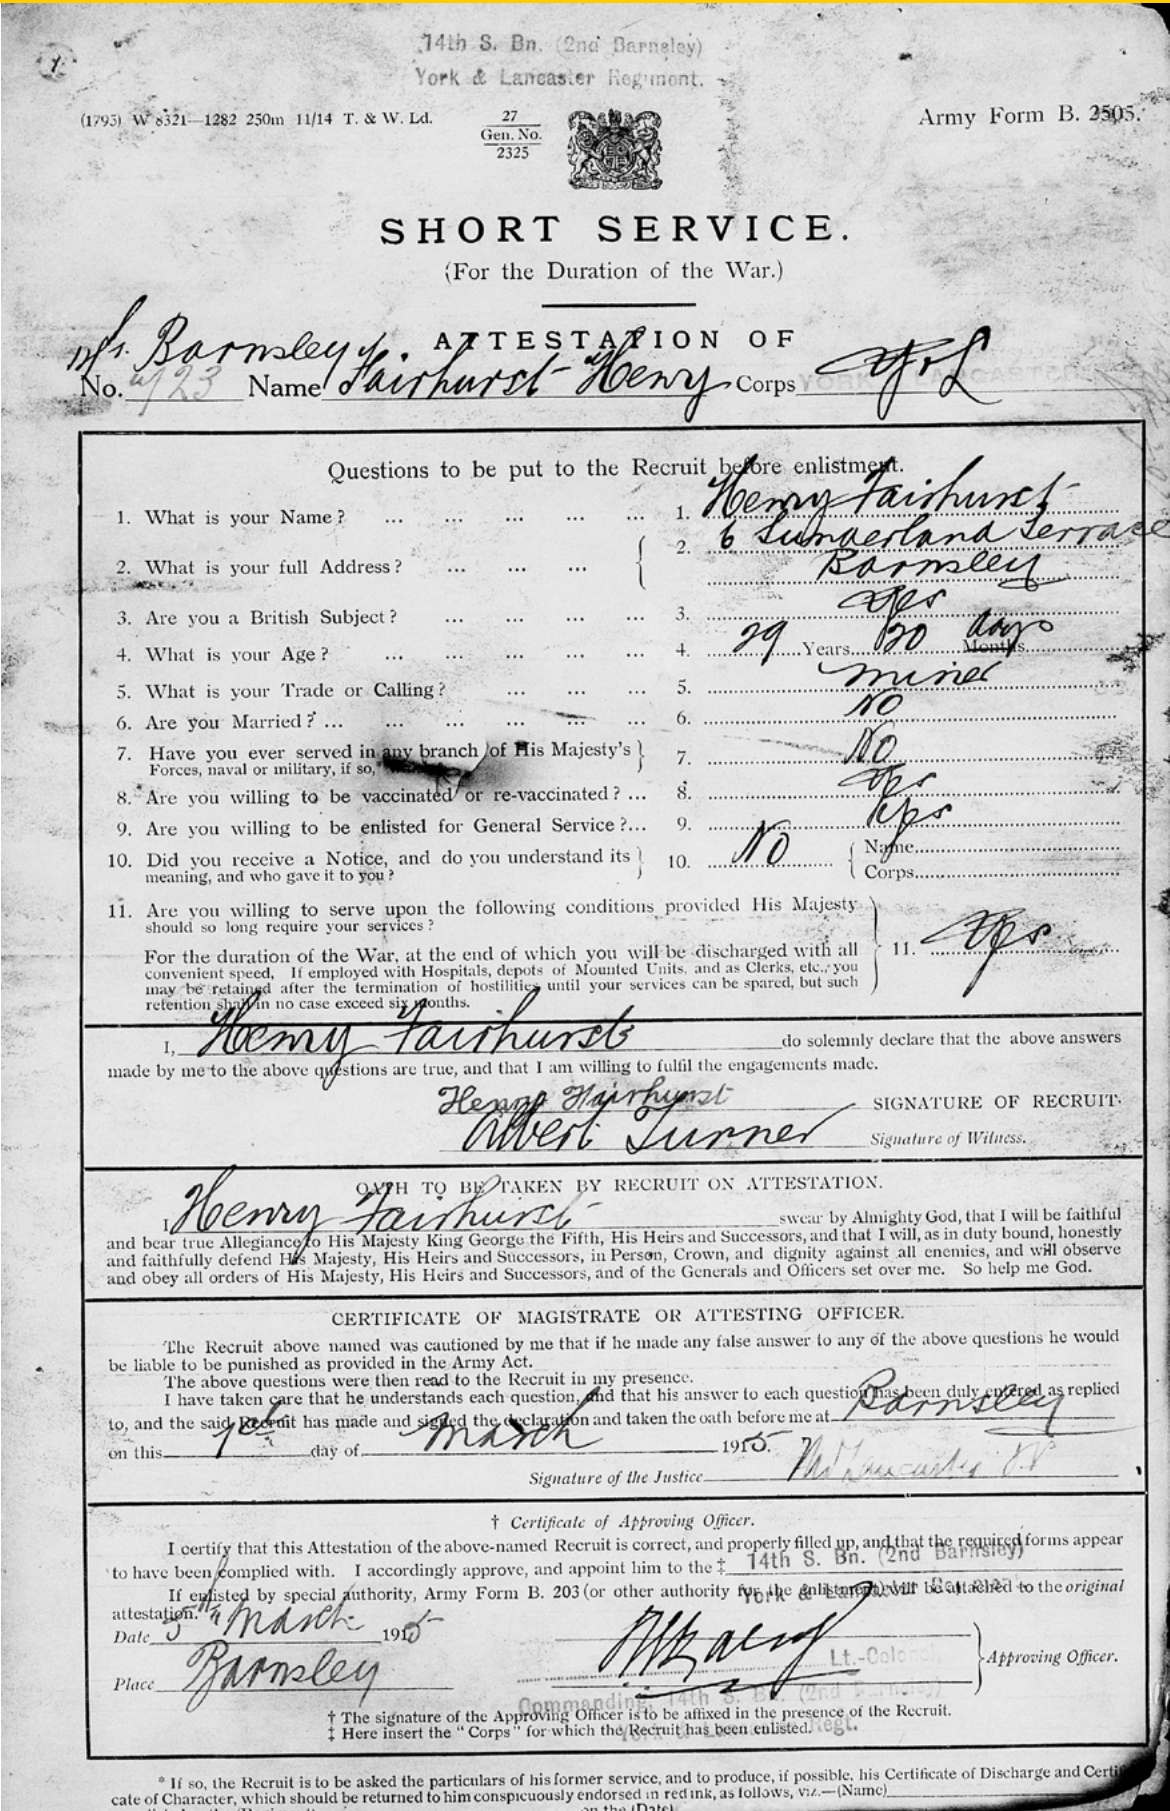 14th S. Bn. (2nd Barnsley)
York & Lancaster Regiment.
(1795) W 8321—1282 250m 11/14 T. & W. Ld.
27
Gen. No.
2325
Army Form B. 2505.
SHORT SERVICE.
(For the Duration of the War.)
ATTESTATION OF
Barnsley
No. Name Fairhurst Henry Corps Y & L
YORK & LANCASTER
Questions to be put to the Recruit before enlistment.
1. What is your Name? ... ... ... ... ... 1. Henry Fairhurst
2. What is your full Address? ... ... ... { 2. 6 Sunderland Terrace
Barnsley
3. Are you a British Subject? ... ... ... ... 3. Yes
4. What is your Age? ... ... ... ... ... 4. 29 Years 20 days Months
5. What is your Trade or Calling? ... ... ... 5. Miner
6. Are you Married? ... ... ... ... ... ... 6. No
7. Have you ever served in any branch of His Majesty's } 7. No
Forces, naval or military, if so,
8. Are you willing to be vaccinated or re-vaccinated? ... 8. Yes
9. Are you willing to be enlisted for General Service? ... 9. Yes
10. Did you receive a Notice, and do you understand its } 10. No { Name
meaning, and who gave it to you? Corps
11. Are you willing to serve upon the following conditions provided His Majesty
should so long require your services?
For the duration of the War, at the end of which you will be discharged with all } 11. Yes
convenient speed. If employed with Hospitals, depots of Mounted Units, and as Clerks, etc., you
may be retained after the termination of hostilities until your services can be spared, but such
retention shall in no case exceed six months.
I, Henry Fairhurst do solemnly declare that the above answers
made by me to the above questions are true, and that I am willing to fulfil the engagements made.
Henry Fairhurst SIGNATURE OF RECRUIT.
Albert Turner Signature of Witness.
OATH TO BE TAKEN BY RECRUIT ON ATTESTATION.
I Henry Fairhurst swear by Almighty God, that I will be faithful
and bear true Allegiance to His Majesty King George the Fifth, His Heirs and Successors, and that I will, as in duty bound, honestly
and faithfully defend His Majesty, His Heirs and Successors, in Person, Crown, and dignity against all enemies, and will observe
and obey all orders of His Majesty, His Heirs and Successors, and of the Generals and Officers set over me. So help me God.
CERTIFICATE OF MAGISTRATE OR ATTESTING OFFICER.
The Recruit above named was cautioned by me that if he made any false answer to any of the above questions he would
be liable to be punished as provided in the Army Act.
The above questions were then read to the Recruit in my presence.
I have taken care that he understands each question, and that his answer to each question has been duly entered as replied
to, and the said Recruit has made and signed the declaration and taken the oath before me at Barnsley
on this 1st day of March 1915.
Signature of the Justice Lancaster J.P
† Certificate of Approving Officer.
I certify that this Attestation of the above-named Recruit is correct, and properly filled up, and that the required forms appear
to have been complied with. I accordingly approve, and appoint him to the ‡ 14th S. Bn. (2nd Barnsley)
York & Lancaster
If enlisted by special authority, Army Form B. 203 (or other authority for the enlistment) will be attached to the original
attestation.
Date 5th March 1915
Lt.-Colonel, } Approving Officer.
Place Barnsley
Commanding, 14th S. Bn. (2nd Barnsley)
York & Lancaster Regt.
† The signature of the Approving Officer is to be affixed in the presence of the Recruit.
‡ Here insert the "Corps" for which the Recruit has been enlisted.
* If so, the Recruit is to be asked the particulars of his former service, and to produce, if possible, his Certificate of Discharge and Certif
cate of Character, which should be returned to him conspicuously endorsed in red ink, as follows, viz.—(Name)
on the (Date)